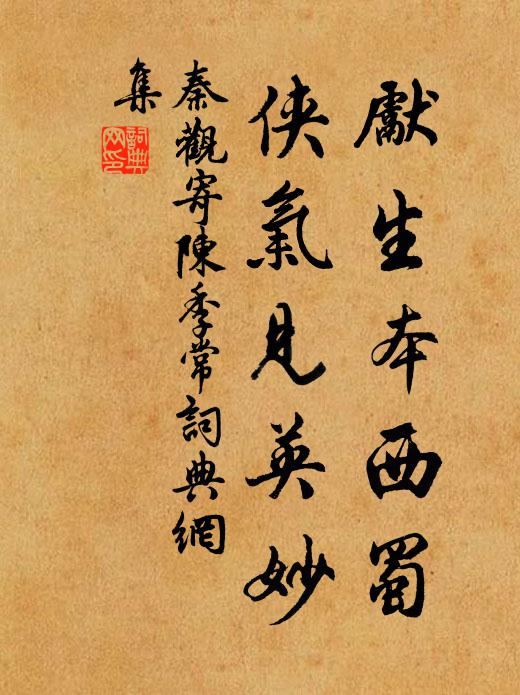 獻生本西蜀
俠氣見英妙
秦觀寄陳季常詞典網
集
詞典
网印